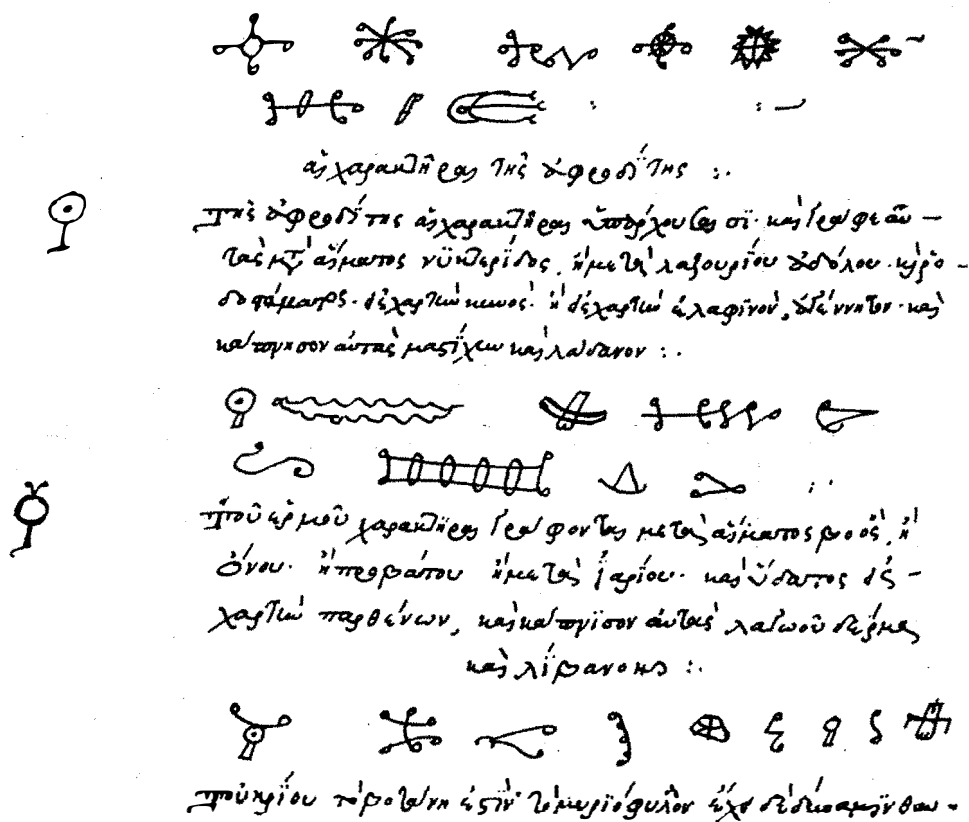 αἱ χαρακτῆρες τῆς ἀφροδίτης :.
Τῆς ἀφροδίτης αἱ χαρακτῆρες καὶ γράφε αὐ-
τὰς μετὰ αἵματος νυκτερίδος, ἢ μετὰ λαζουρίου ἀδόλου. καὶ ῥο-
δοστάματος. ἢ εἰς χαρτίον ἐλάφινον, ἀγέννητον. καὶ
κάπνησον αὐτὰς μαστίχην καὶ λάδανον :.
Τοῦ ἑρμοῦ χαρακτῆρες γράφονται μετὰ αἵματος βοὸς, ἢ
ὄνου. ἢ προβάτου ἢ μετὰ καὶ ὕδατος εἰς
χαρτίον παρθένων, καὶ κάπνισον αὐτὰς λαγωοῦ δέρμα
καὶ λίβανον :.
Τοῦ κριοῦ τὸ βοτάνη ἐστὶν τὸ μυριόφυλλον ἔχει δὲ